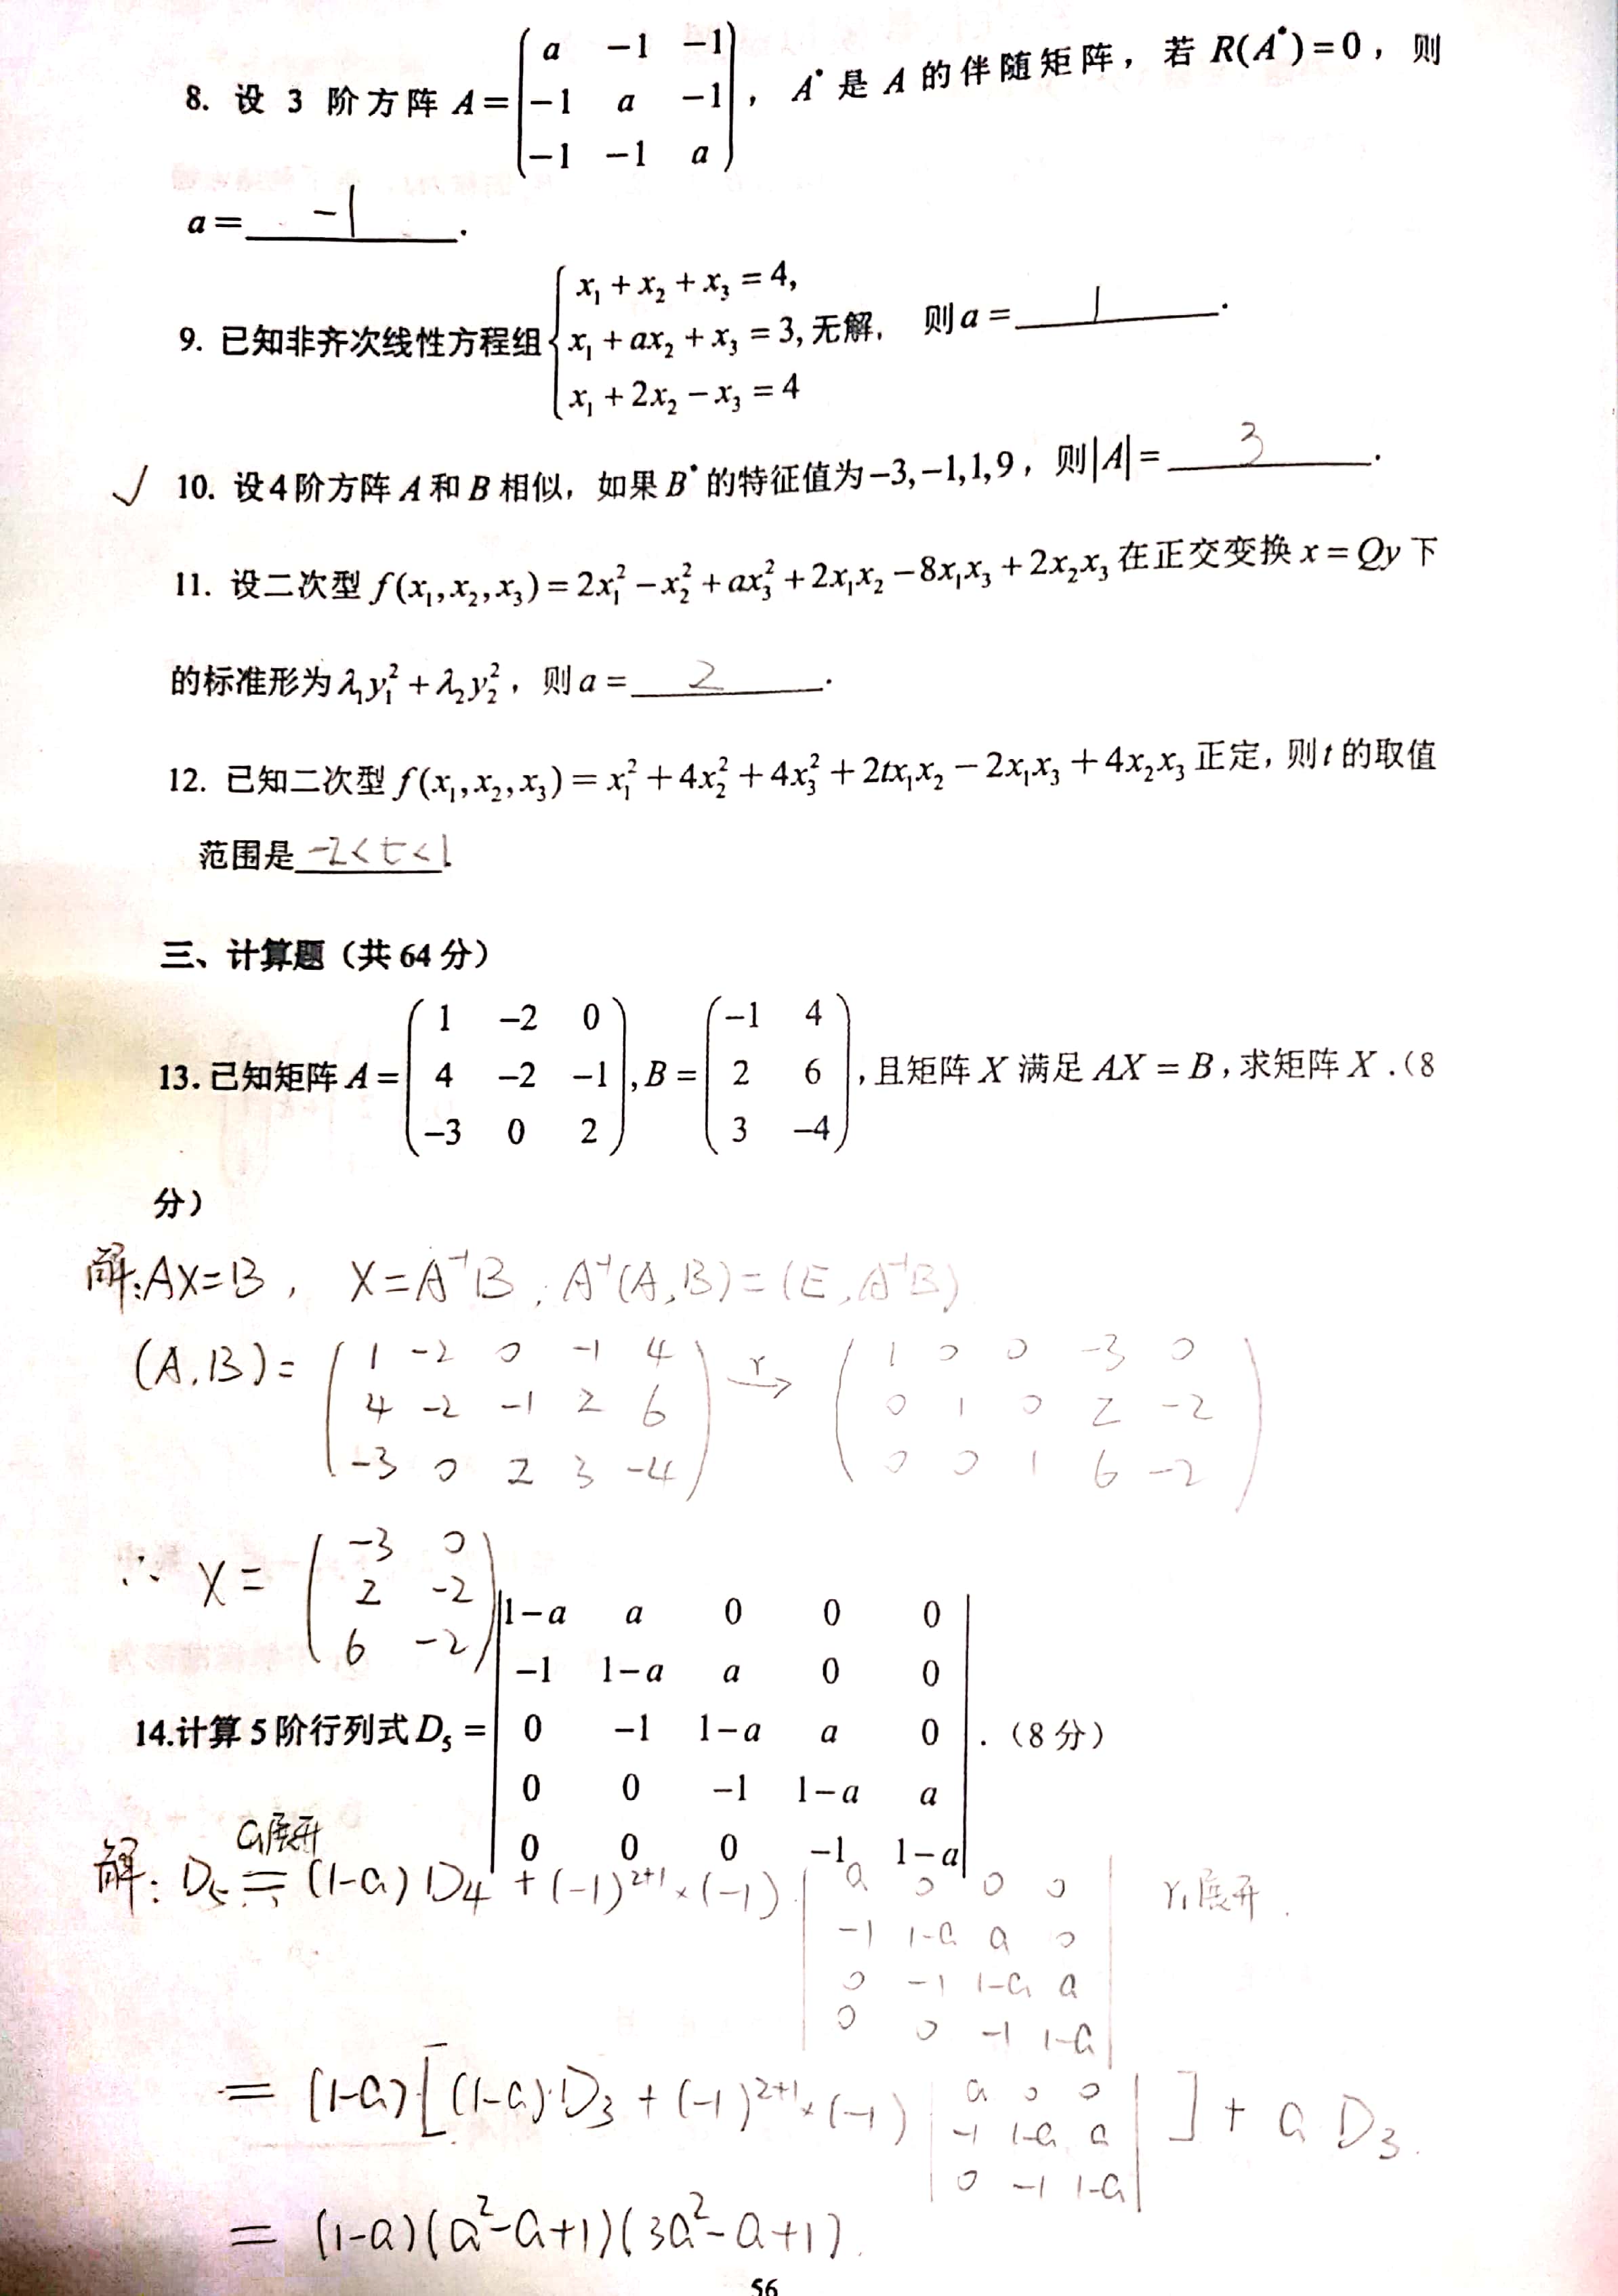 8. 设 3 阶方阵 A = \begin{pmatrix} a & -1 & -1 \\ -1 & a & -1 \\ -1 & -1 & a \end{pmatrix}, A* 是 A 的伴随矩阵，若 R(A*)=0，则
a = -1 .
9. 已知非齐次线性方程组 \begin{cases} x₁ + x₂ + x₃ = 4, \\ x₁ + ax₂ + x₃ = 3, \\ x₁ + 2x₂ − x₃ = 4 \end{cases} 无解, 则 a = 1 .
✓ 10. 设4阶方阵 A 和 B 相似，如果 B* 的特征值为 −3,−1,1,9，则|A| = 3 .
11. 设二次型 f(x₁,x₂,x₃) = 2x₁² − x₂² + ax₃² + 2x₁x₂ − 8x₁x₃ + 2x₂x₃ 在正交变换 x = Qy 下
的标准形为 λ₁y₁² + λ₂y₂²，则 a = 2 .
12. 已知二次型 f(x₁,x₂,x₃) = x₁² + 4x₂² + 4x₃² + 2tx₁x₂ − 2x₁x₃ + 4x₂x₃ 正定，则 t 的取值
范围是 -2<t<1 .
三、计算题（共 64 分）
13. 已知矩阵 A = \begin{pmatrix} 1 & -2 & 0 \\ 4 & -2 & -1 \\ -3 & 0 & 2 \end{pmatrix}, B = \begin{pmatrix} -1 & 4 \\ 2 & 6 \\ 3 & -4 \end{pmatrix}, 且矩阵 X 满足 AX = B, 求矩阵 X .（8
分）
解: AX=B , X=A⁻¹B , A⁻¹(A,B)=(E,A⁻¹B)
(A,B)= \begin{pmatrix} 1 & -2 & 0 & -1 & 4 \\ 4 & -2 & -1 & 2 & 6 \\ -3 & 0 & 2 & 3 & -4 \end{pmatrix} \xrightarrow{r} \begin{pmatrix} 1 & 0 & 0 & -3 & 0 \\ 0 & 1 & 0 & 2 & -2 \\ 0 & 0 & 1 & 6 & -2 \end{pmatrix}
∴ X = \begin{pmatrix} -3 & 0 \\ 2 & -2 \\ 6 & -2 \end{pmatrix}
14.计算 5 阶行列式 D₅ = \begin{vmatrix} 1-a & a & 0 & 0 & 0 \\ -1 & 1-a & a & 0 & 0 \\ 0 & -1 & 1-a & a & 0 \\ 0 & 0 & -1 & 1-a & a \\ 0 & 0 & 0 & -1 & 1-a \end{vmatrix} .（8 分）
解: D₅ \xlongequal{c₁展开} (1-a) D₄ + (-1)²⁺¹×(-1) \begin{vmatrix} a & 0 & 0 & 0 \\ -1 & 1-a & a & 0 \\ 0 & -1 & 1-a & a \\ 0 & 0 & -1 & 1-a \end{vmatrix} r₁展开 .
= (1-a)[(1-a)·D₃ + (-1)²⁺¹×(-1) \begin{vmatrix} a & 0 & 0 \\ -1 & 1-a & a \\ 0 & -1 & 1-a \end{vmatrix} ] + a D₃ .
= (1-a)(a²-a+1)(3a²-a+1) .
56